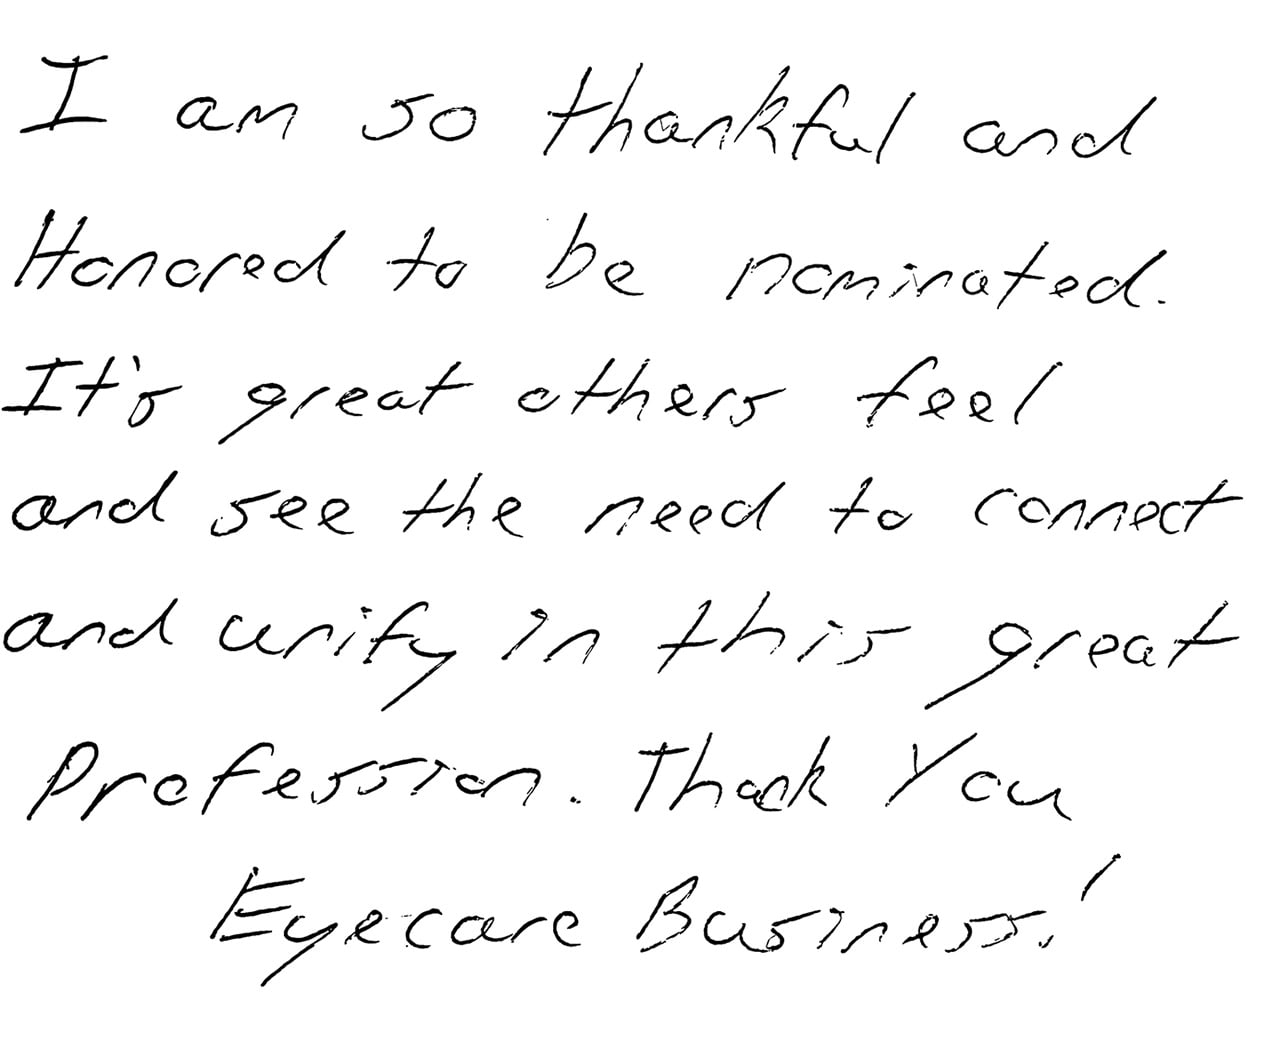 I am so thankful and
Honored to be nominated.
It's great others feel
and see the need to connect
and unify in this great
Profession. Thank You
Eyecare Business!